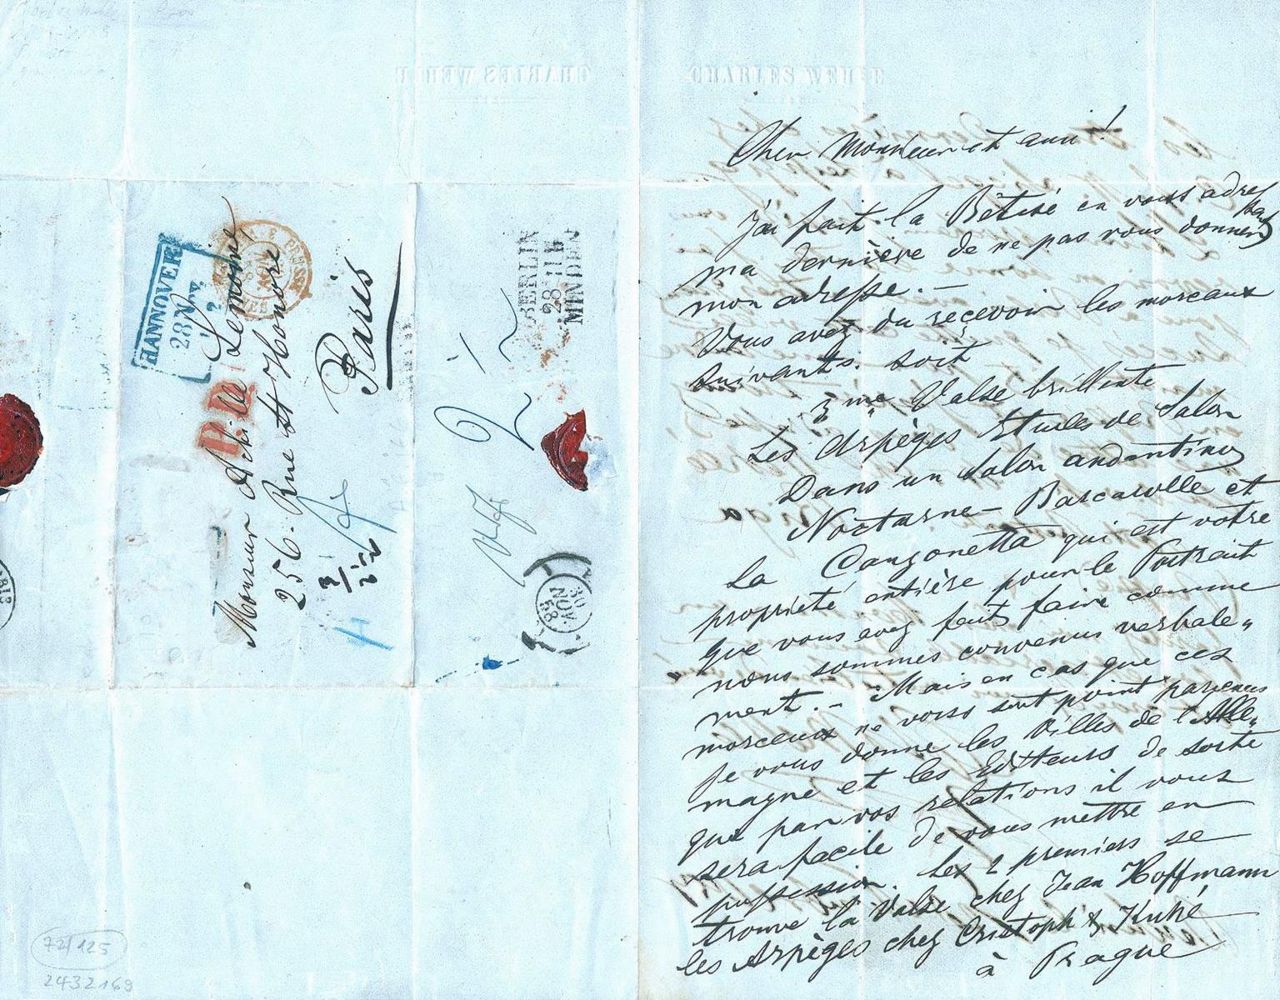 CHARLES WEHLE
Cher Monsieur et ami!
J'ai fait la Bêtise en vous adres
sant
ma dernière de ne pas vous donner
mon adresse. –
Vous avez du recevoir les morceaux
suivants. soit
3me Valse brillante
Les Arpèges Etudes de Salon
Dans un Salon andantino
Nocturne – Barcarolle et
La Canzonetta qui est votre
propriété entière pour le Portrait
que vous avez fait faire comme
nous sommes convenus verbale„
ment. – Mais en cas que ces
morceaux ne vous sont point parvenus
je vous donne les Villes de l'Alle„
magne et les Editeurs de sorte
que par vos relations il vous
sera facile de vous mettre en
possession. Les 2 premiers se
trouve la Valse chez Jean Hoffmann
les Arpèges chez Cristoph & Kuhé
à Prague
Monsieur Achille Lemoine
256. Rue St Honoré
Paris
HANNOVER
28 Nov.
BERLIN
28 11
MINDEN
30
NOV
59
72/125
2432169